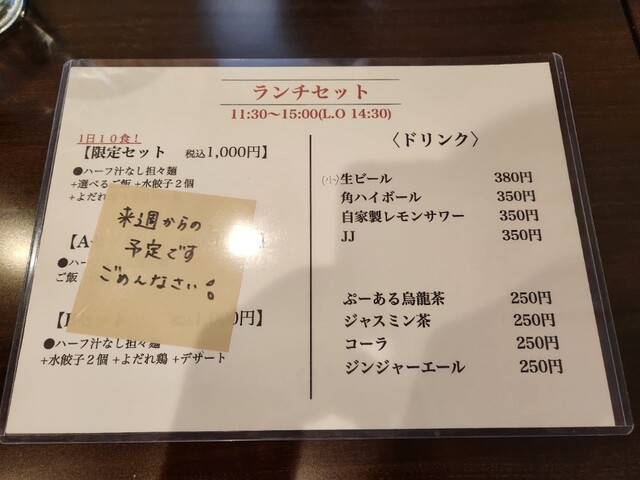 ランチセット
11:30〜15:00(L.O 14:30)
1日10食!
【限定セット 税込1,000円】
●ハーフ汁なし担々麺
+選べるご飯 +水餃子2個
+よだれ
【A
●ハー
ご飯
円】
●ハーフ汁なし担々麺
+水餃子2個 +よだれ鶏 +デザート
来週からの
予定です
ごめんなさい!
〈ドリンク〉
(小)生ビール 380円
角ハイボール 350円
自家製レモンサワー 350円
JJ 350円
ぷーある烏龍茶 250円
ジャスミン茶 250円
コーラ 250円
ジンジャーエール 250円